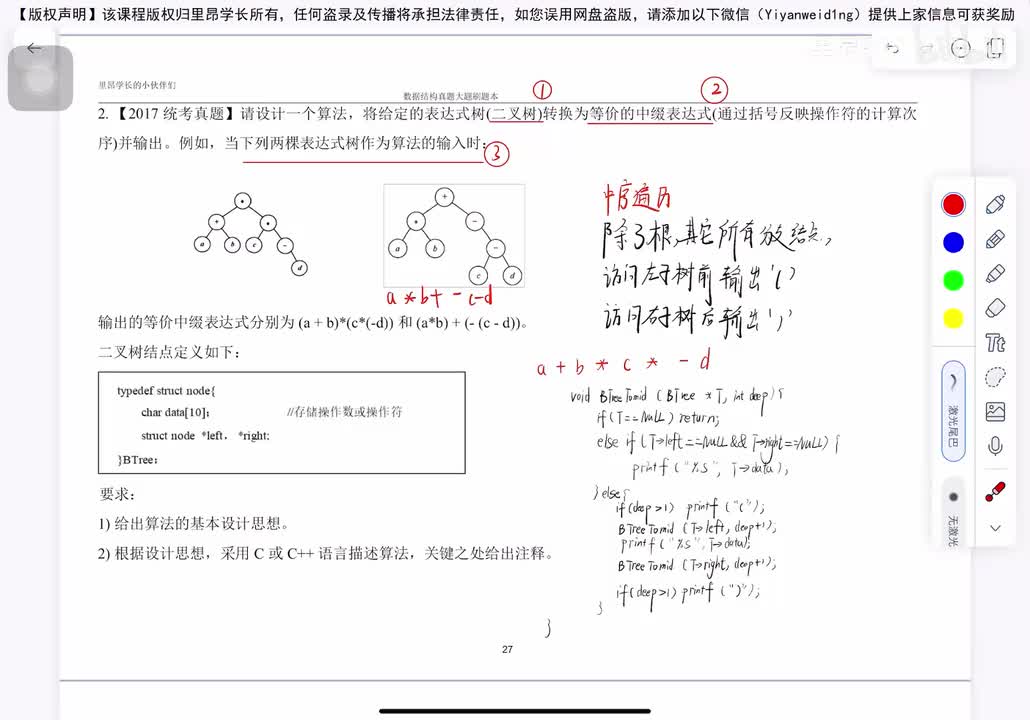 【版权声明】该课程版权归里昂学长所有，任何盗录及传播将承担法律责任，如您误用网盘盗版，请添加以下微信（Yiyanweid1ng）提供上家信息可获奖励
里昂学长的小伙伴们
数据结构真题大题刷题本
① ②
2.【2017 统考真题】请设计一个算法，将给定的表达式树(二叉树)转换为等价的中缀表达式(通过括号反映操作符的计算次
序)并输出。例如，当下列两棵表达式树作为算法的输入时：
③
* + * a b c - d
+ * - a b - c d
a * b + - c - d
中序遍历
除了根,其它所有分支结点,
访问左子树前输出'('
访问右子树后输出')'
输出的等价中缀表达式分别为 (a + b)*(c*(-d)) 和 (a*b) + (- (c - d))。
二叉树结点定义如下：
a + b * c * - d
typedef struct node{
char data[10]; //存储操作数或操作符
struct node *left， *right;
}BTree;
void BTreeTomid (BTree *T, int deep){
if(T==NULL) return;
else if (T->left==NULL && T->right==NULL) {
printf ("%S", T->data);
} else{
if(deep>1) printf ("(");
BTreeTomid (T->left, deep+1);
printf ("%S", T->data);
BTreeTomid (T->right, deep+1);
if(deep>1) printf (")");
}
}
要求：
1) 给出算法的基本设计思想。
2) 根据设计思想，采用 C 或 C++ 语言描述算法，关键之处给出注释。
27
Tt
激光尾巴
无激光